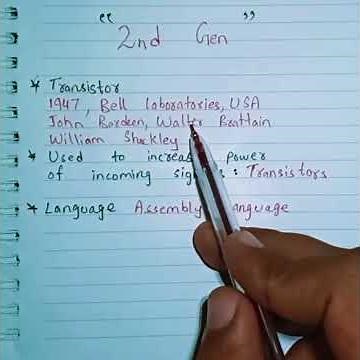 "2nd Gen"
* Transistor
1947, Bell Laboratories, USA
John Bardeen, Walter Brattain
William Shockley
* Used to increase power
of incoming : Transistors
* Language Assembly Language